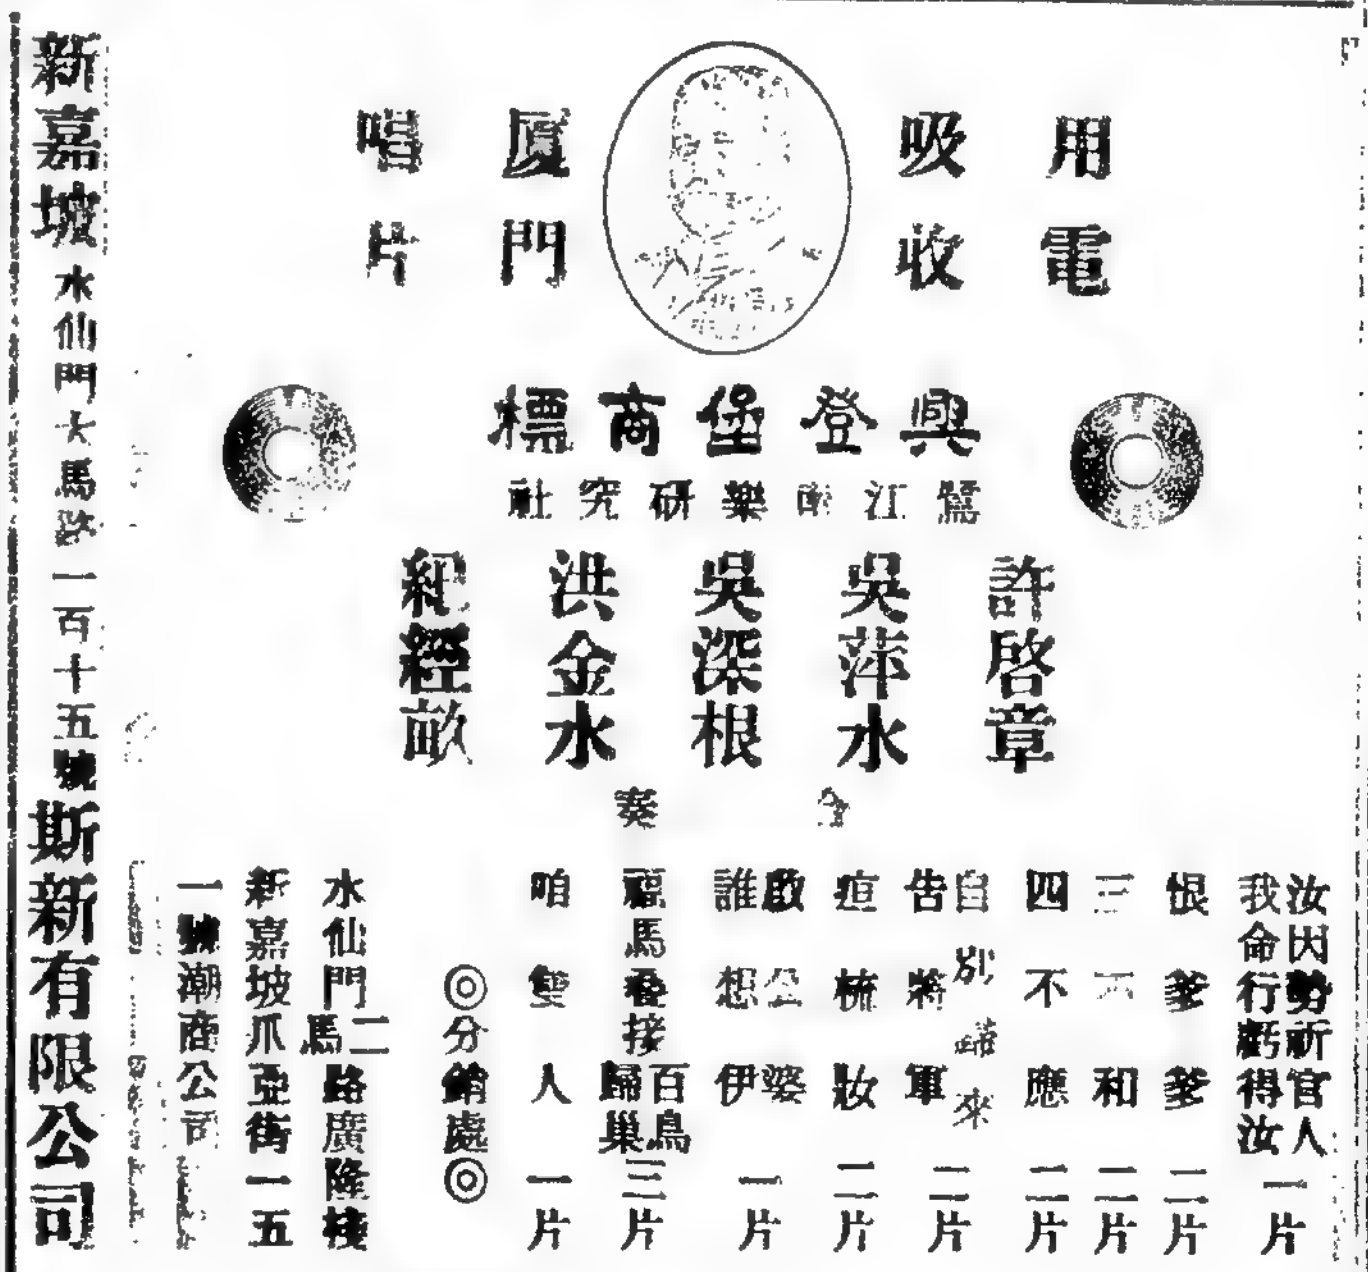 用電
吸收
厦門
唱片
興登堡商標
鷺江南樂研究社
許啓章
吳萍水
吳深根
洪金水
紀經畝
合奏
汝因勢祈官人
我命行虧得汝
一片
恨爹爹 二片
三不和 二片
四不應 二片
自別歸來
告將軍
二片
疸梳妝 二片
啟公婆
誰想伊
一片
福馬疊接
百鳥歸巢
三片
咱雙人 一片
◎分銷處◎
水仙門二馬路廣隆棧
新嘉坡爪亞街一五
一號潮商公司
新嘉坡水仙門大馬路一百十五號斯新有限公司